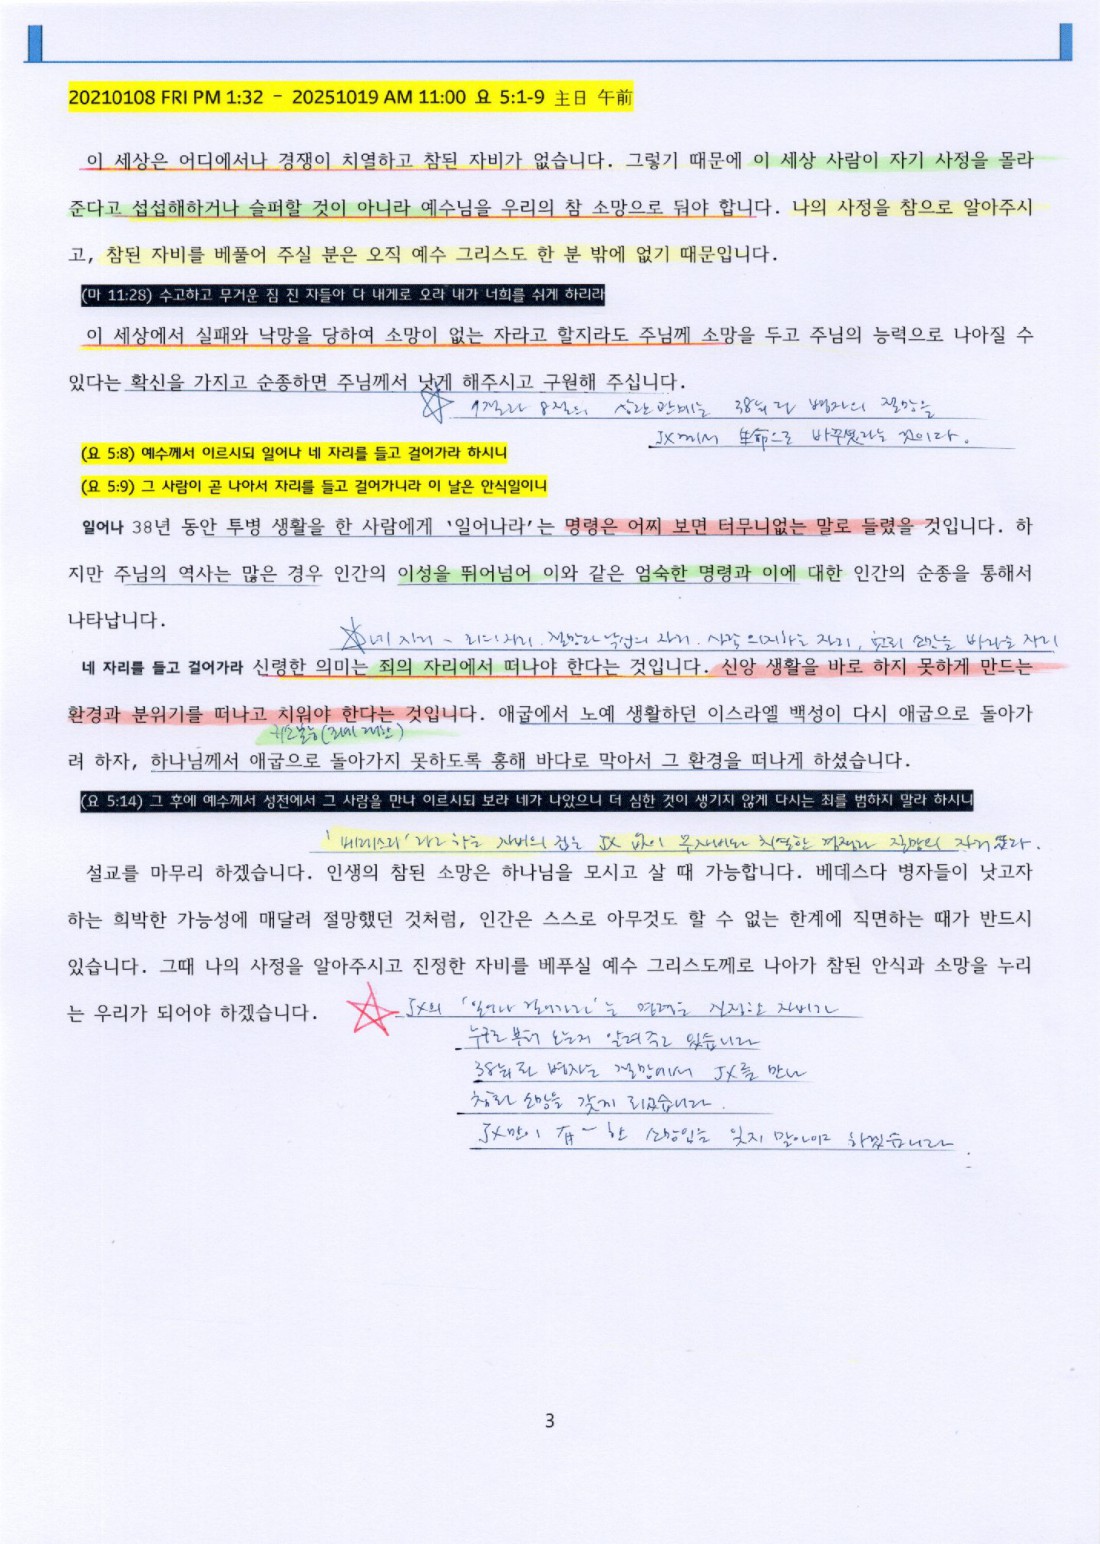 20210108 FRI PM 1:32 - 20251019 AM 11:00 요 5:1-9 主日 午前
이 세상은 어디에서나 경쟁이 치열하고 참된 자비가 없습니다. 그렇기 때문에 이 세상 사람이 자기 사정을 몰라
준다고 섭섭해하거나 슬퍼할 것이 아니라 예수님을 우리의 참 소망으로 둬야 합니다. 나의 사정을 참으로 알아주시
고, 참된 자비를 베풀어 주실 분은 오직 예수 그리스도 한 분 밖에 없기 때문입니다.
(마 11:28) 수고하고 무거운 짐 진 자들아 다 내게로 오라 내가 너희를 쉬게 하리라
이 세상에서 실패와 낙망을 당하여 소망이 없는 자라고 할지라도 주님께 소망을 두고 주님의 능력으로 나아질 수
있다는 확신을 가지고 순종하면 주님께서 낫게 해주시고 구원해 주십니다.
8절의 상관관계는 38년 된 병자의 절망을
JX께서 生命으로 바꾸셨다는 것이다.
(요 5:8) 예수께서 이르시되 일어나 네 자리를 들고 걸어가라 하시니
(요 5:9) 그 사람이 곧 나아서 자리를 들고 걸어가니라 이 날은 안식일이니
일어나 38년 동안 투병 생활을 한 사람에게 '일어나라'는 명령은 어찌 보면 터무니없는 말로 들렸을 것입니다. 하
지만 주님의 역사는 많은 경우 인간의 이성을 뛰어넘어 이와 같은 엄숙한 명령과 이에 대한 인간의 순종을 통해서
나타납니다.
네 자리 - 죄의 자리. 절망과 낙심의 자리. 사람 의지하는 자리, 소망을 바라는 자리
네 자리를 들고 걸어가라 신령한 의미는 죄의 자리에서 떠나야 한다는 것입니다. 신앙 생활을 바로 하지 못하게 만드는
환경과 분위기를 떠나고 치워야 한다는 것입니다. 애굽에서 노예 생활하던 이스라엘 백성이 다시 애굽으로 돌아가
려 하자, 하나님께서 애굽으로 돌아가지 못하도록 홍해 바다로 막아서 그 환경을 떠나게 하셨습니다.
(요 5:14) 그 후에 예수께서 성전에서 그 사람을 만나 이르시되 보라 네가 나았으니 더 심한 것이 생기지 않게 다시는 죄를 범하지 말라 하시니
'베데스다'라고 하는 자비의 집은 JX 없이 무자비와 치열한 경쟁과 절망의 자리였다.
설교를 마무리 하겠습니다. 인생의 참된 소망은 하나님을 모시고 살 때 가능합니다. 베데스다 병자들이 낫고자
하는 희박한 가능성에 매달려 절망했던 것처럼, 인간은 스스로 아무것도 할 수 없는 한계에 직면하는 때가 반드시
있습니다. 그때 나의 사정을 알아주시고 진정한 자비를 베푸실 예수 그리스도께로 나아가 참된 안식과 소망을 누리
는 우리가 되어야 하겠습니다.
JX의 '일어나 걸어가라'는 명령은 진정한 자비가
누구로부터 오는지 알려주고 있습니다
38년 된 병자는 절망에서 JX를 만나
참된 소망을 갖게 되었습니다.
JX만이 有一한 소망임을 잊지 말아야 하겠습니다
3